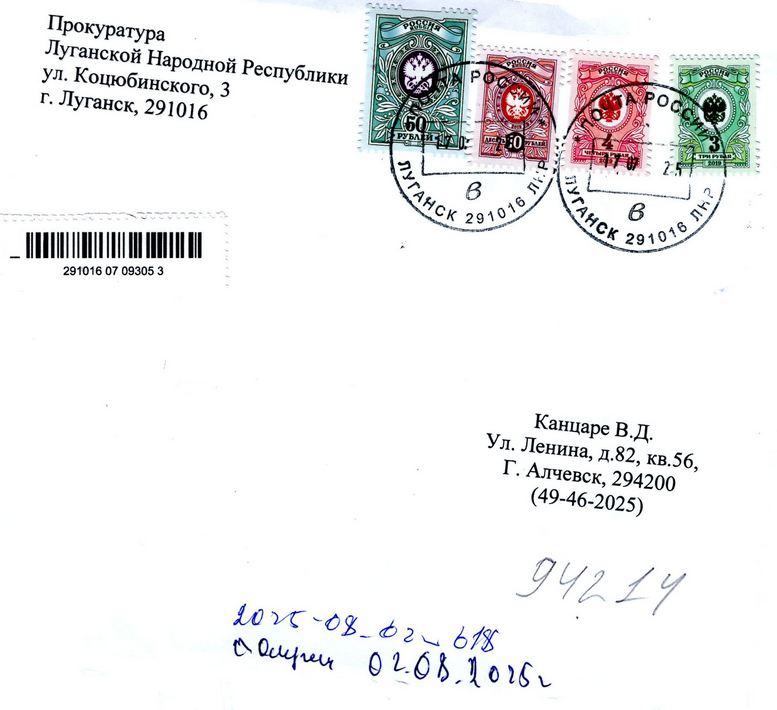 Прокуратура
Луганской Народной Республики
ул. Коцюбинского, 3
г. Луганск, 291016
РОССИЯ
RUSSIA
50
РУБЛЕЙ
РОССИЯ
10
РОССИЯ
4
РОССИЯ
3
ТРИ РУБЛЯ
2019
ПОЧТА РОССИИ
в
ЛУГАНСК 291016 ЛНР
ПОЧТА РОССИИ
17 07
в
ЛУГАНСК 291016 ЛНР
291016 07 09305 3
Канцаре В.Д.
Ул. Ленина, д.82, кв.56,
Г. Алчевск, 294200
(49-46-2025)
94214
2025-08-02-618
Получен 02.08.2025г